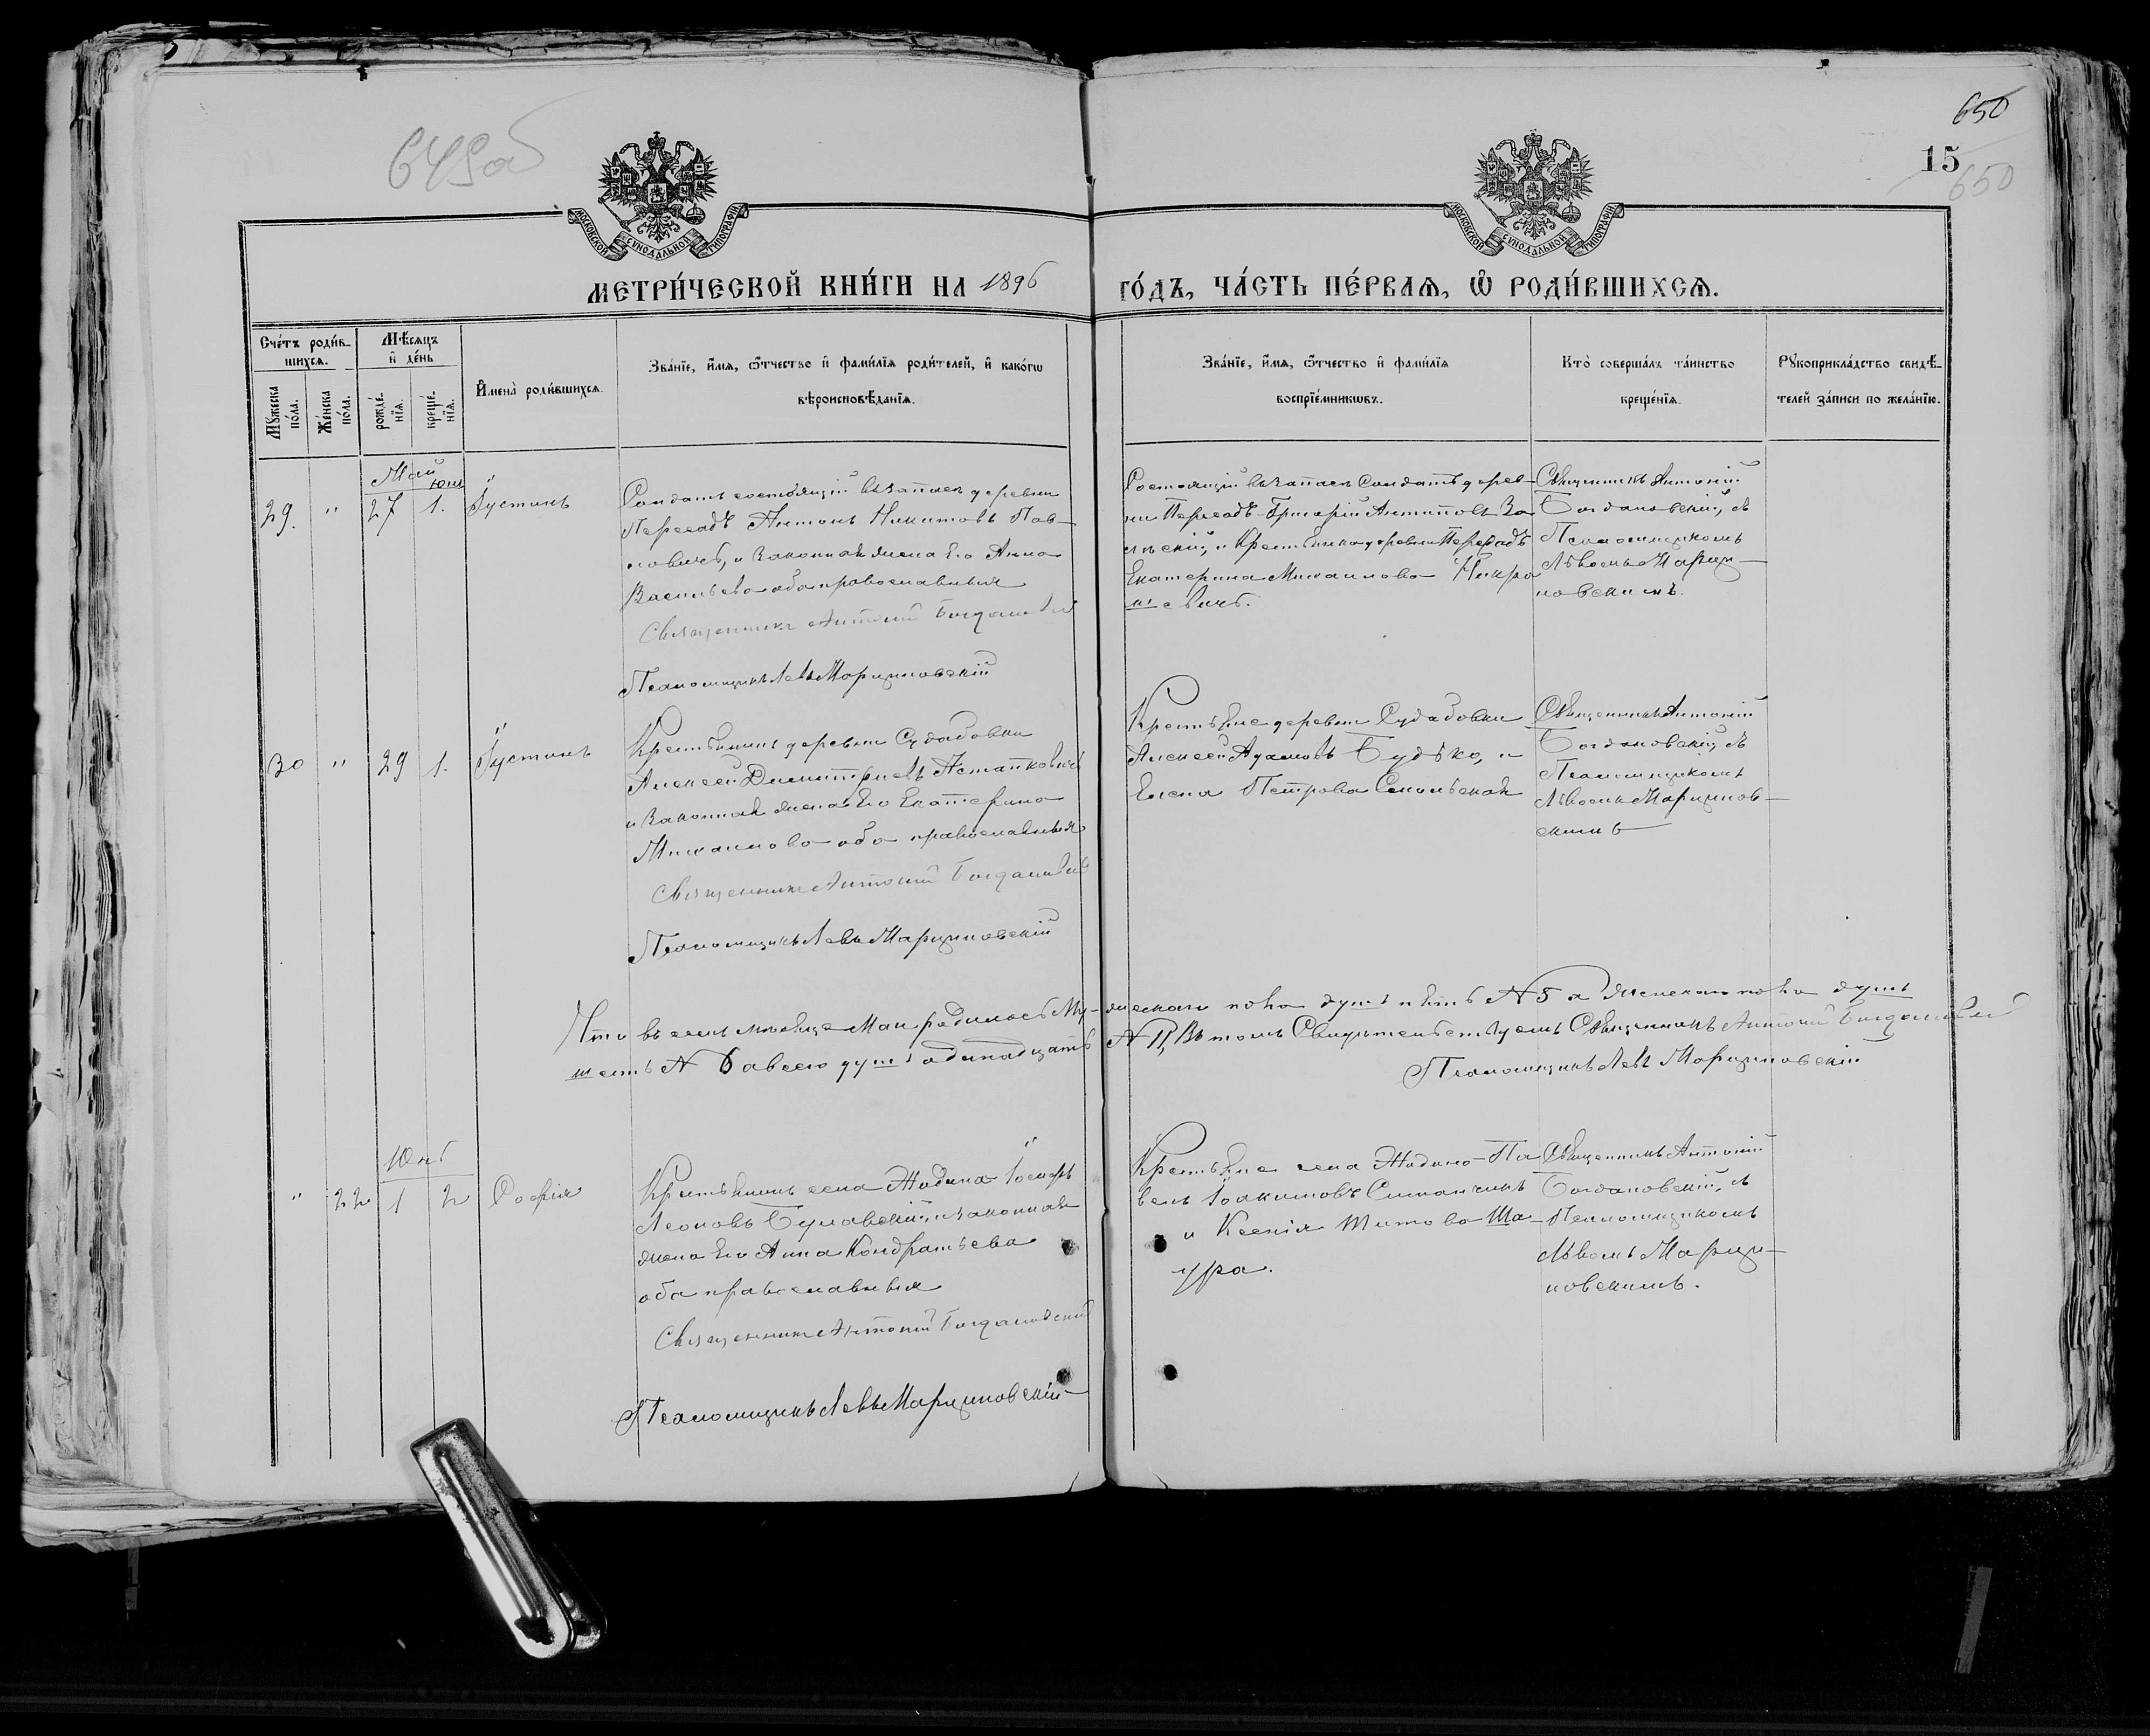 649об
650
15
650
МОСКОВСКОЙ СѴНОДАЛЬНОЙ ТИПОГРАФІИ
МОСКОВСКОЙ СѴНОДАЛЬНОЙ ТИПОГРАФІИ
МЕТРИ́ЧЕСКОЙ КНИ́ГИ НА 1896 ГО́ДЪ, ЧА́СТЬ ПЕ́РВАѦ, Ѡ РОДИ́ВШИХСѦ.
Сче́тъ роди́в-
шихсѧ.
Мѣ́сѧцъ
и҆ де́нь
Мꙋ́жеска
по́ла.
Же́нска
по́ла.
рожде́-
нїѧ.
креще́-
нїѧ.
И҆мена̀ роди́вшихсѧ.
Зва́нїе, и҆́мѧ, ѻ҆́тчество и҆ фами́лїѧ роди́телей, и҆ како́гѡ
вѣроисповѣ́данїѧ.
Зва́нїе, и҆́мѧ, ѻ҆́тчество и҆ фами́лїѧ
воспрїе́мникѡвъ.
Кто̀ соверша́лъ та́инство
креще́нїѧ.
Рꙋкоприкла́дство свидѣ́-
телей за́писи по жела́нїю.
Май
Юнь
29. " 27 1. Іустинъ
Солдатъ состоящій въ запасѣ деревни
Пересадъ Антонъ Никитовъ Пав-
ловичъ, и законная жена его Анна
Васильева оба православныя
Священникъ Антоній Богдановскій
Псаломщикъ Левъ Марциновскій
Состоящій въ запасѣ Солдатъ дерев-
ни Пересадъ Григорій Антиповъ За
лѣскій, и Крестьянка деревни Пересадъ
Екатерина Михаилова Некра
шевичъ.
Священникъ Антоній
Богдановскій, съ
Псаломщикомъ
Львомъ Марци-
новскимъ.
30 " 29 1. Іустинъ
Крестьянинъ деревни Судабовки
Алексей Димитріевъ Астапковичъ
и законная жена его Екатерина
Михаилова оба православныя
Священникъ Антоній Богдановскій
Псаломщикъ Левъ Марциновскій
Крестьяне деревни Судабовки
Алексей Адамовъ Будько, и
Елена Петрова Сокольская
Священникъ Антоній
Богдановскій, съ
Псаломщикомъ
Львомъ Марцинов-
скимъ
Что въ семъ месяце Маи родилось Му-жескаго пола душъ пять №5 а женскаго пола душъ
шесть № 6 а всего душъ одинадцать № 11, Въ томъ Свидетельствуемъ Священникъ Антоній Богдановскій
Псаломщикъ Левъ Марциновскій
Юнь
" 22 1 2 Софія
Крестьянинъ села Жодина Іосифъ
Леоновъ Булавскій, и законная
жена его Анна Кондратьева
оба православныя
Священникъ Антоній Богдановскій
Псаломщикъ Левъ Марциновскій
Крестьяне села Жодино Па
велъ Іоакимовъ Симанчикъ
и Ксенія Титова Ша
ура.
Священникъ Антоній
Богдановскій, съ
Псаломщикомъ
Львомъ Марци-
новскимъ.